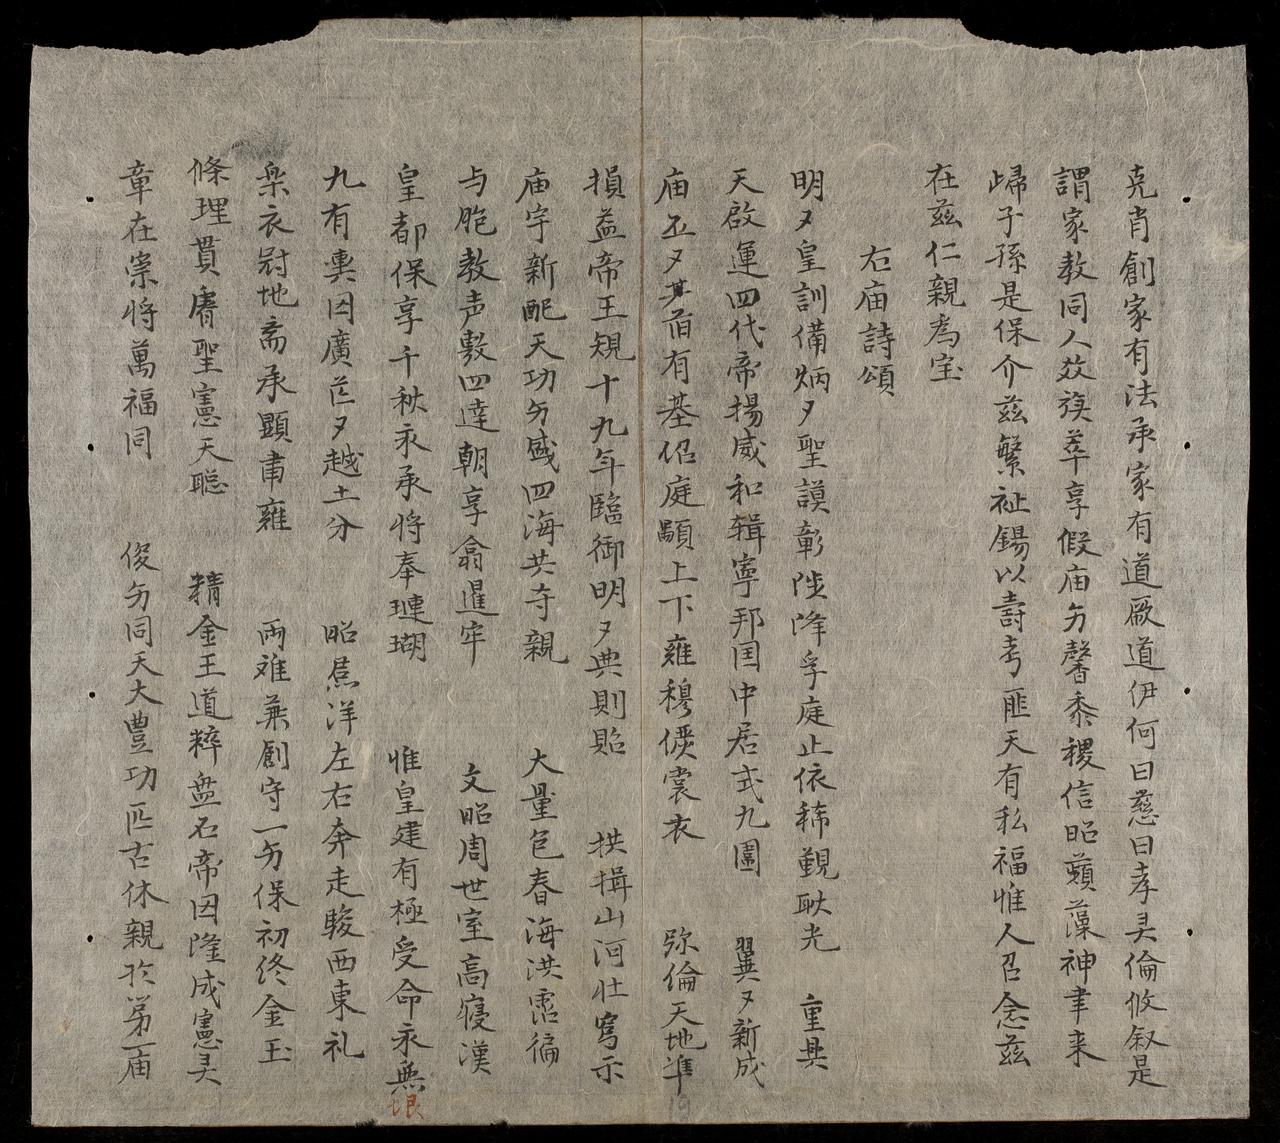 克肖創家有法承家有道厥道伊何曰慈曰孝彝倫攸叙是
謂家教同人效族萃享假庙芳馨黍稷信昭蘋藻神聿来
歸子孫是保介兹繁祉錫以壽考匪天有私福惟人召念兹
在兹仁親為宝
右庙詩頌
明々皇訓備炳々聖謨彰陟降孚庭止依稀覲耿光　重典
天啟運四代帝揚威和辑寧邦国中居式九圍　翼々新成
庙丕丕其前有基侶庭顒上下雍穆儼裳衣　弥倫天地準
損益帝王規十九年臨御明々典則貽　拱揖山河壮寫示
庙宇新配天功夯盛四海共寺親　大量包春海洪霑徧
与胞教声敷四達朝享翕暹牢　文昭周世室高寢漢
皇都保享千秋永承將奉璉瑚　惟皇建有極受命永無垠
九有輿図廣茫々越土分　昭焄洋左右奔走駿西東礼
樂衣冠地斋承顯肅雍　両难兼創守一夯保初终金玉
條理貫膺聖憲天聪　精金王道粹盘石帝図隆成憲彝
章在崇將萬福同　俊夯同天大豊功匹古休親於第一庙
19